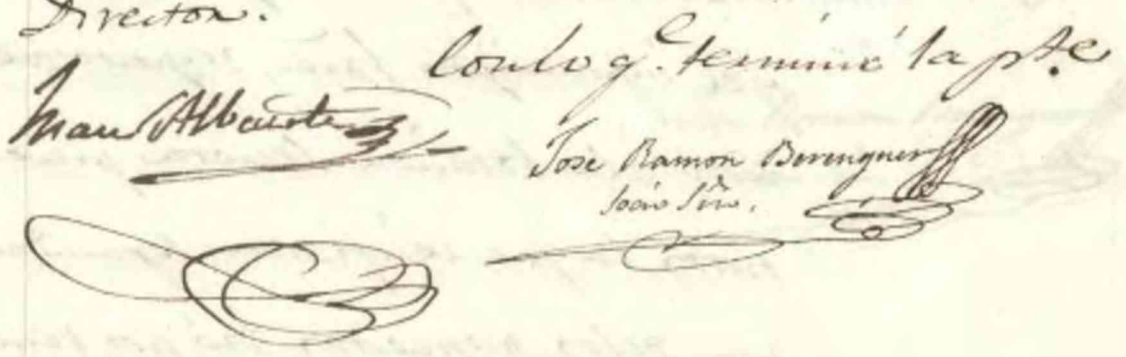 Director.
Con lo q.e terminé la pte
Juan Albacete
José Ramon Berenguer
Socio Srio.